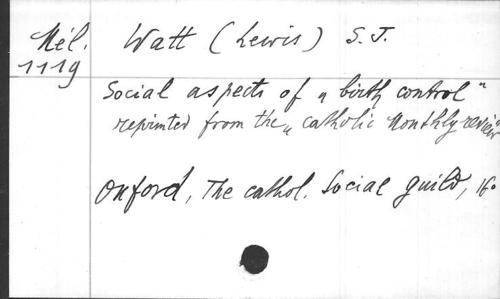 Mél. Watt (Lewis) S. J.
1119
Social aspects of „birth control"
reprinted from the „catholic Monthly review"
Oxford, The cathol. Social guild, 16°